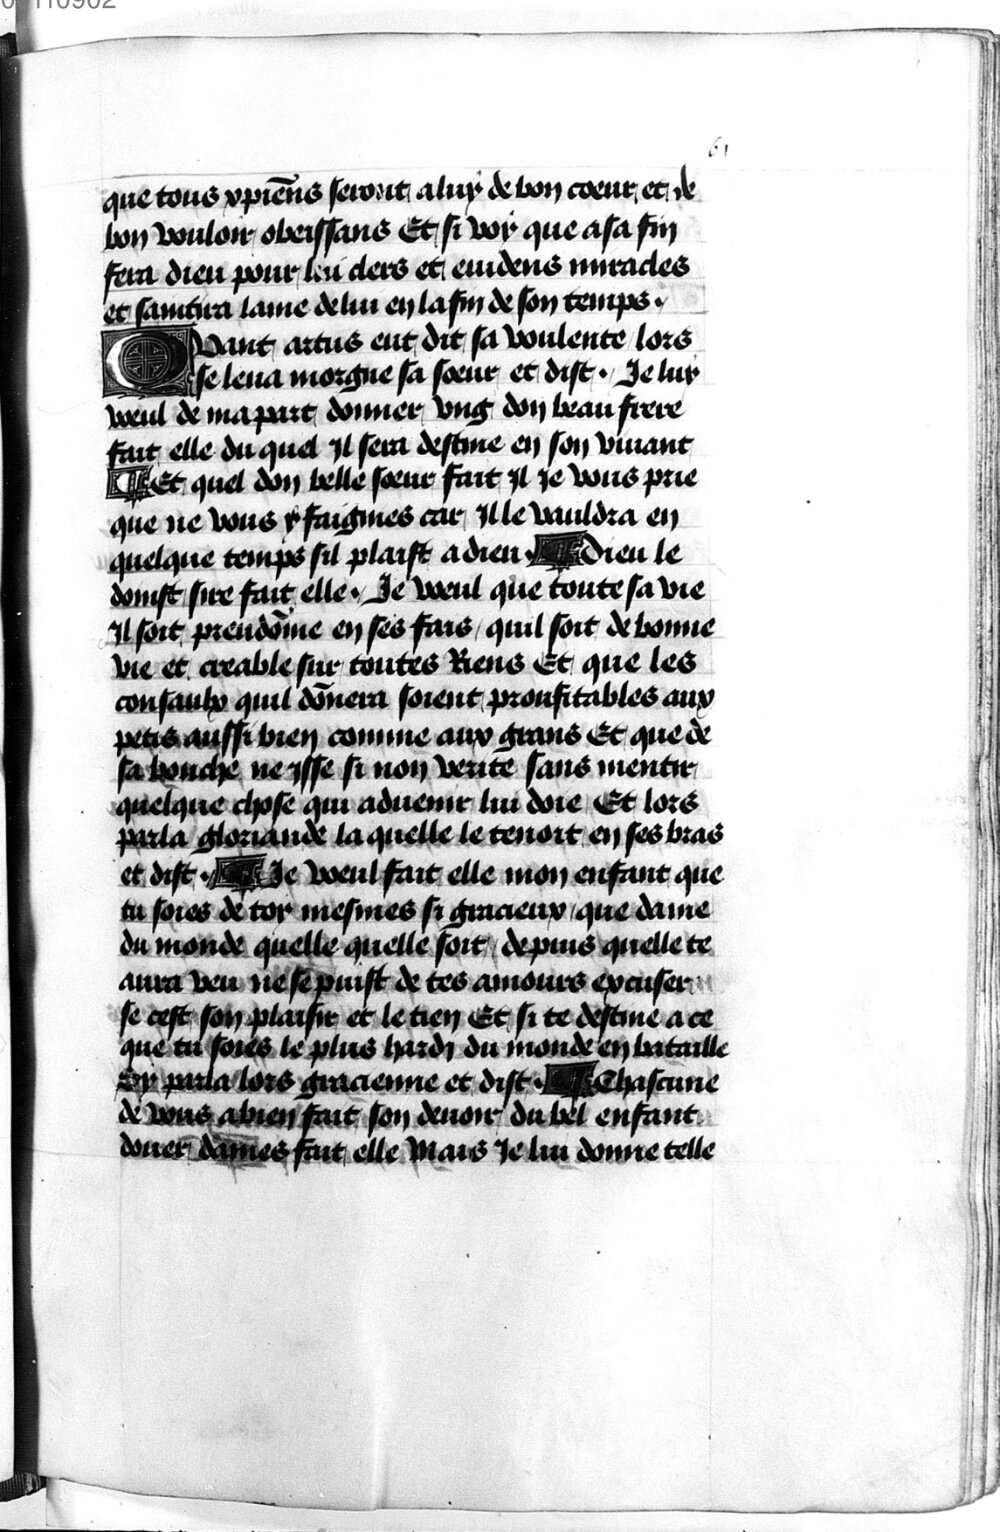 61
que tous xpiẽns seront a luy de bon coeur et de
bon vouloir obeissans Et si voy que a sa fin
fera dieu pour lui clers et euidens miracles
et saintira lame de lui en la fin de son temps.
Quant artus eut dit sa voulente lors
se leua morgue sa soeur et dist. Je luy
voeul de ma part donner vng don beau frere
fait elle du quel Il sera destine en son viuant
Et quel don belle soeur fait Il Je vous prie
que ne vous y faignies car Il le vauldra en
quelque temps sil plaist a dieu. Dieu le
doinst sire fait elle. Je voeul que toute sa vie
Il soit preudõme en ses fais quil soit de bonne
vie et creable sur toutes Riens Et que les
consaulx quil dõnera soient proufitables aux
petis aussi bien comme aux grans Et que de
sa bouche ne ysse si non verite sans mentir
quelque chose qui aduenir lui doie Et lors
parla gloriande la quelle le tenoit en ses bras
et dist. Je voeul fait elle mon enfant que
tu soies de toy mesmes si gracieux que dame
du monde quelle quelle soit depuis quelle te
aura veu ne se puist de tes amours excuser
se cest son plaisir et le tien Et si te destine a ce
que tu soies le plus hardy du monde en bataille
Sy parla lors gracienne et dist. Chascune
de vous a bien fait son deuoir du bel enfant
douer dames fait elle Mais Je lui donne telle